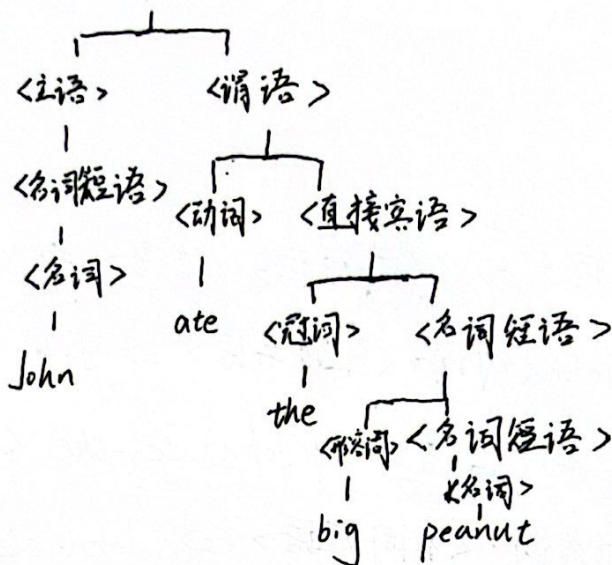 <主语> <谓语>
<名词短语> <动词> <直接宾语>
<名词> ate <冠词> <名词短语>
John the <形容词> <名词短语>
<名词>
big peanut